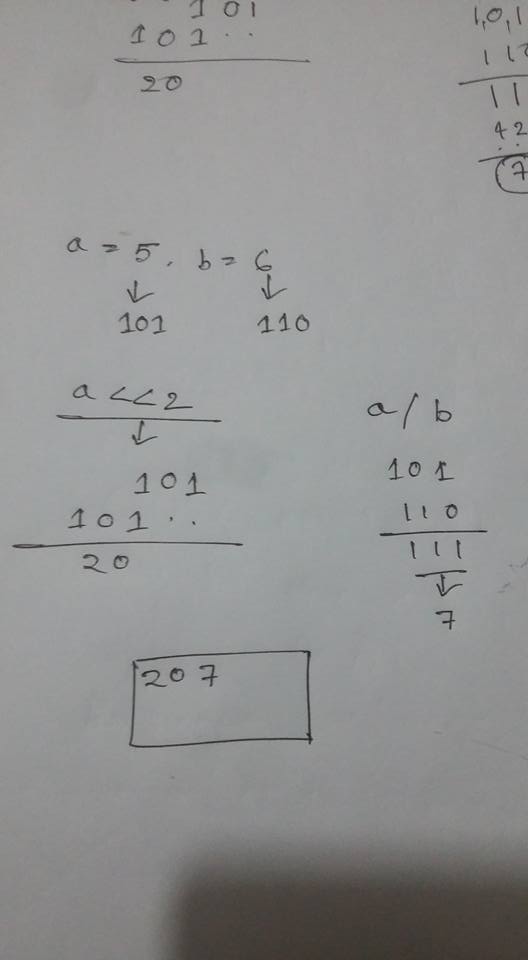 101
101..
20
1,0,1
11
11
42
7
a = 5, b = 6
↓ ↓
101 110
a<<2
↓
101
101..
20
a/b
101
110
111
↓
7
20 7